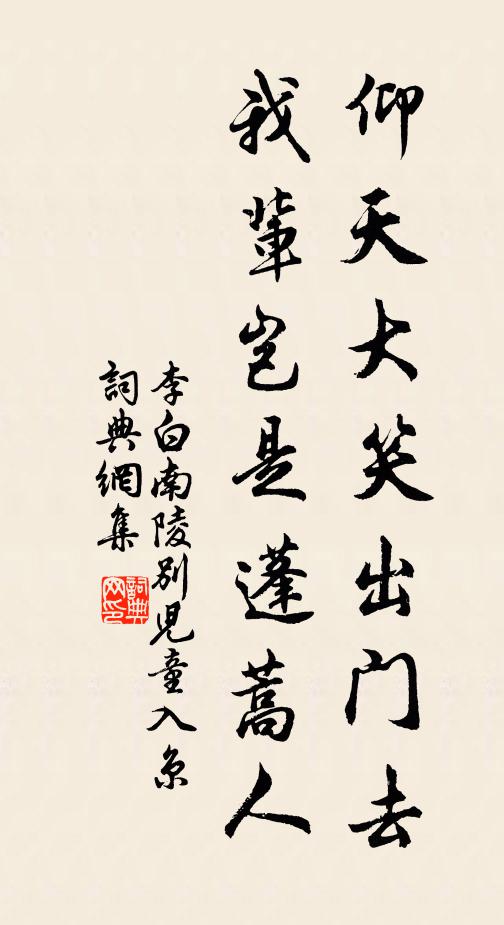 仰天大笑出門去
我輩豈是蓬蒿人
李白南陵別兒童入京
詞典網集
詞典網印